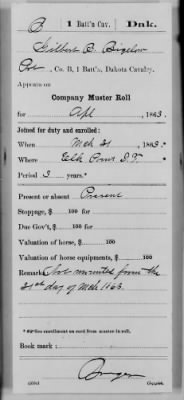 B | 1 Batt'n Cav. | Dak.
Gilbert B. Bigelow
Pvt, Co. B, 1 Batt'n, Dakota Cavalry.
Appears on
Company Muster Roll
for Apl, 1863.
Joined for duty and enrolled:
When Mch 21, 1863.*
Where Elk Point D.T.
Period 3 years.*
Present or absent Present
Stoppage, $ 100 for
Due Gov't, $ 100 for
Valuation of horse, $ 100
Valuation of horse equipments, $ 100
Remarks: Not mounted from the
21st day of Mch 1863.
* See enrollment on card from muster-in roll.
Book mark:
Copyist.